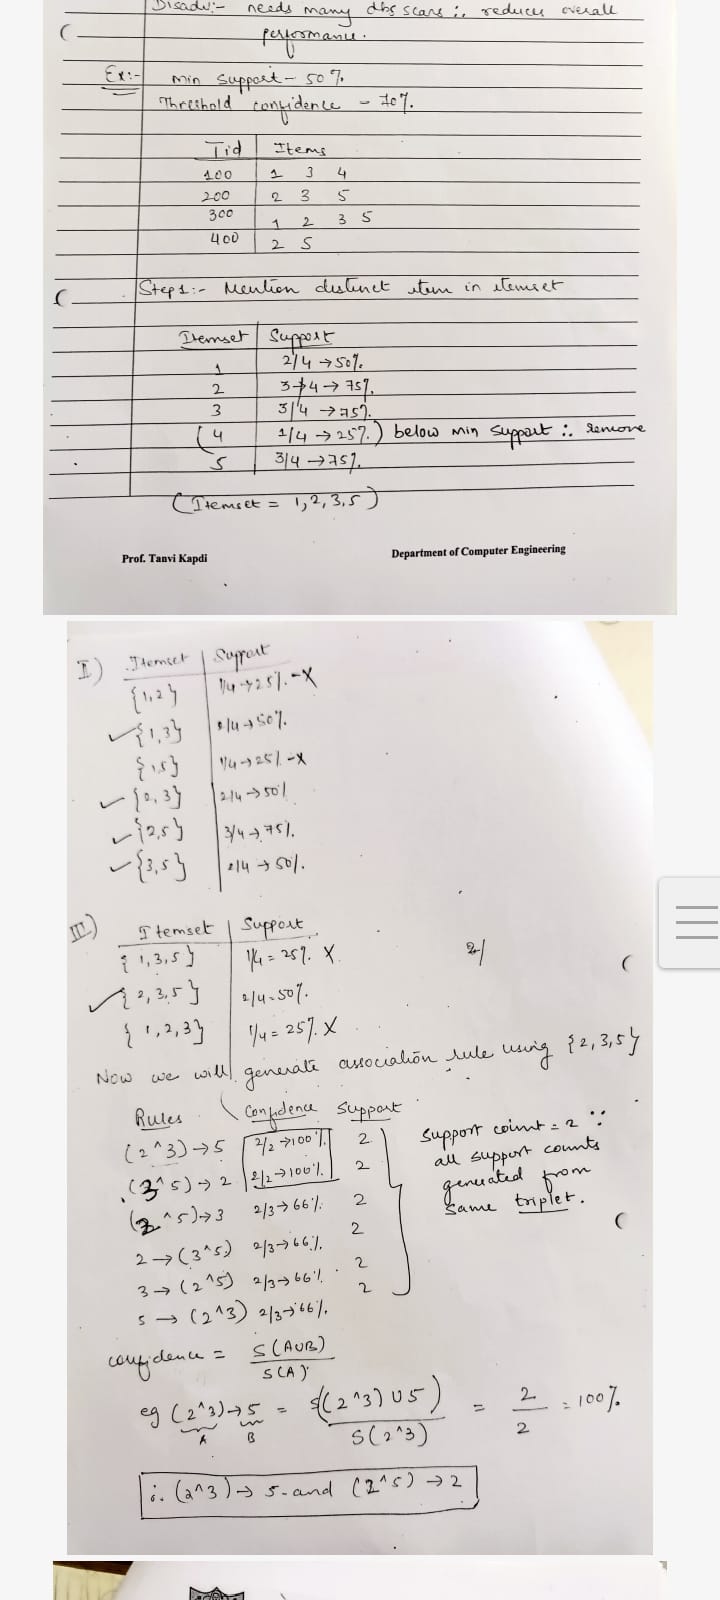 Disadv:- needs many dbs scans ∴ reduces overall
performance.
Ex:- min support - 50%
Threshold confidence - 70%.
Tid Items
100 1 3 4
200 2 3 5
300 1 2 3 5
400 2 5
Step 1:- Mention distinct item in itemset
Itemset Support
1 2/4 → 50%
2 3/4 → 75%
3 3/4 → 75%.
( 4 1/4 → 25%.) below min support ∴ remove
5 3/4 → 75%.
(Itemset = 1, 2, 3, 5)
Prof. Tanvi Kapdi Department of Computer Engineering
II) Itemset Support
{1,2} 1/4 → 25%. - X
✓ {1,3} 2/4 → 50%.
{1,5} 1/4 → 25% - X
✓ {2,3} 2/4 → 50%
✓ {2,5} 3/4 → 75%.
✓ {3,5} 2/4 → 50%.
III) Itemset Support
{1,3,5} 1/4 = 25%. X
✓ {2,3,5} 2/4 = 50%.
{1,2,3} 1/4 = 25% X
Now we will generate association rule using {2,3,5}
Rules Confidence Support
(2^3) → 5 2/2 → 100% 2
(3^5) → 2 2/2 → 100%. 2
(2^5) → 3 2/3 → 66%. 2
2 → (3^5) 2/3 → 66%. 2
3 → (2^5) 2/3 → 66%. 2
5 → (2^3) 2/3 → 66%. 2
Support count = 2 ∵
all support counts
generated from
same triplet.
confidence = S(AUB)
S(A)
eg (2^3) → 5 = S((2^3) U 5) = 2 = 100%
A B S(2^3) 2
∴ (2^3) → 5 - and (2^5) → 2